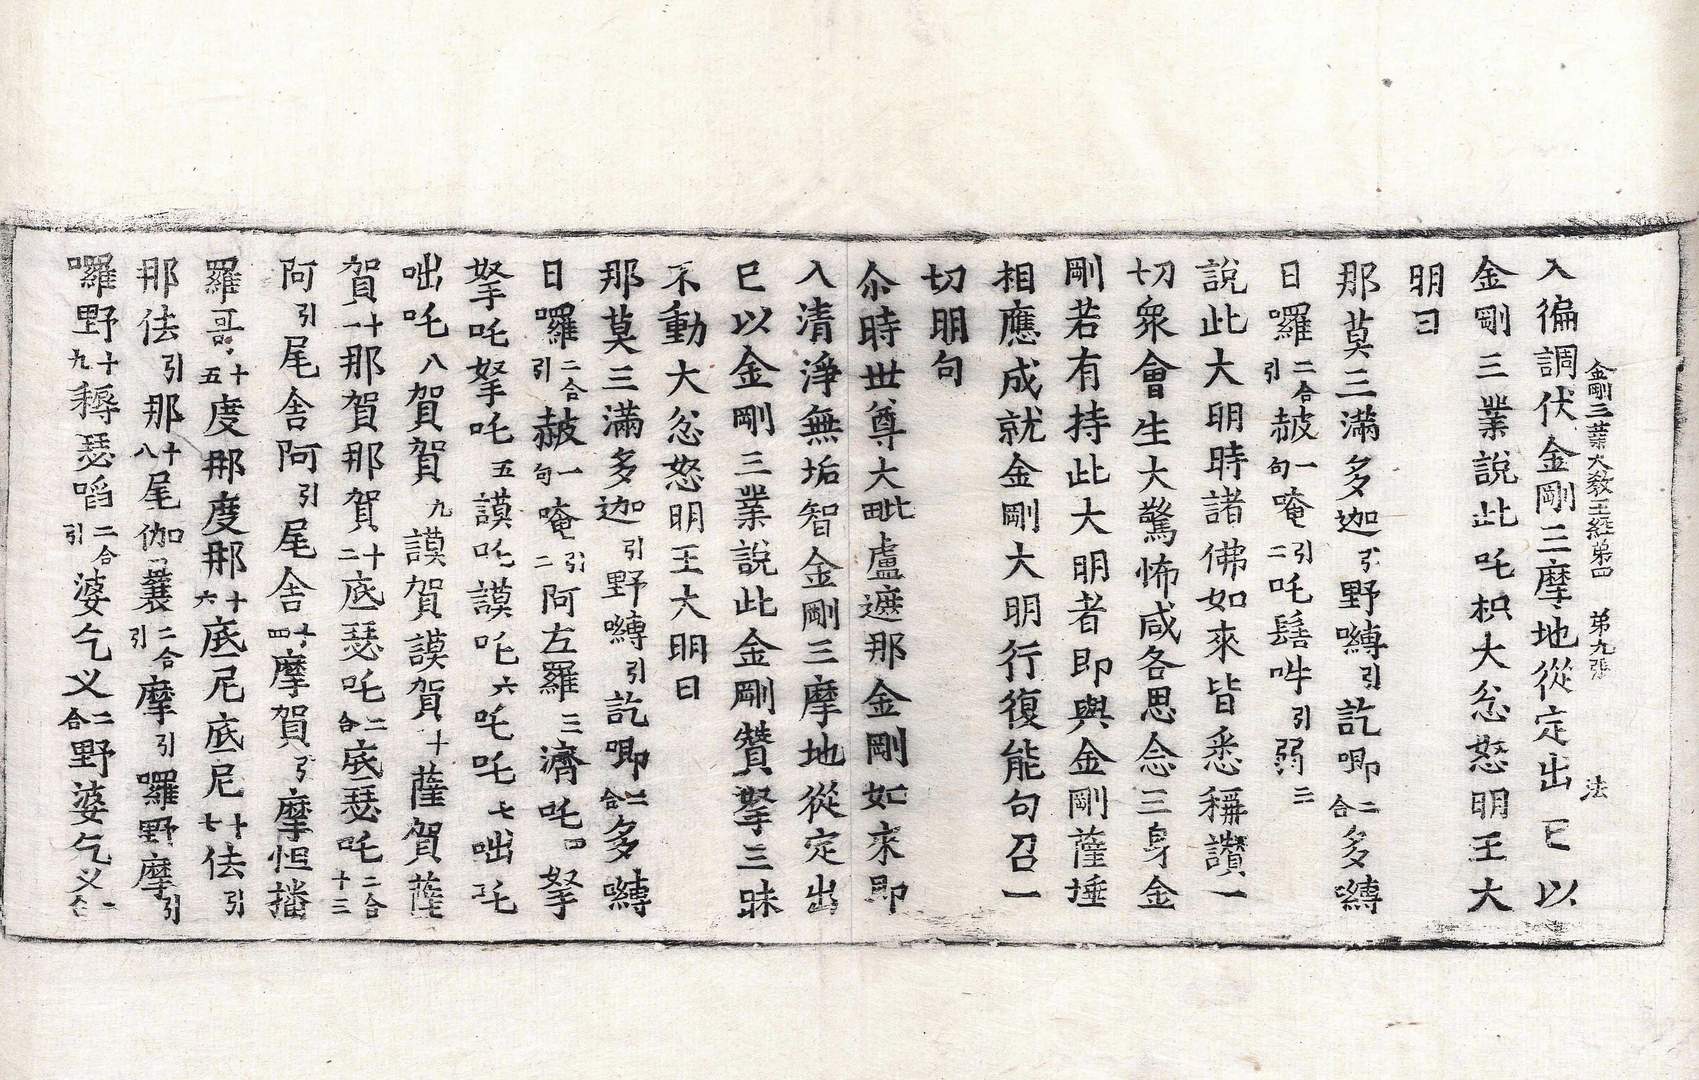 金剛三業大教王經第四　第九張　法
入徧調伏金剛三摩地從定出已以
金剛三業說此吒枳大忿怒明王大
明曰
那莫三滿多迦引野嚩引訖唧二合多嚩
日囉二合引赦一句唵引二吒髻吽引弱三
說此大明時諸佛如來皆悉稱讚一
切衆會生大驚怖咸各思念三身金
剛若有持此大明者即與金剛薩埵
相應成就金剛大明行復能句召一
切明句
尒時世尊大毗盧遮那金剛如來即
入清淨無垢智金剛三摩地從定出
已以金剛三業說此金剛贊拏三昧
不動大忿怒明王大明曰
那莫三滿多迦引野嚩引訖唧二合多嚩
日囉二合引赦一句唵引二阿左羅三濟吒四拏
拏吒拏吒五謨吒謨吒六吒吒七咄吒
咄吒八賀賀九謨賀謨賀十薩賀薩
賀十一那賀那賀十二底瑟吒二合底瑟吒二合十三
阿引尾舍阿引尾舍十四摩賀引摩怛播
羅哥十五度那度那十六底尼底尼十七佉引
那佉引那十八尾伽曩二合引摩引囉野摩引
囉野十九耨瑟㗖二合引婆乞义二合野婆乞义二合